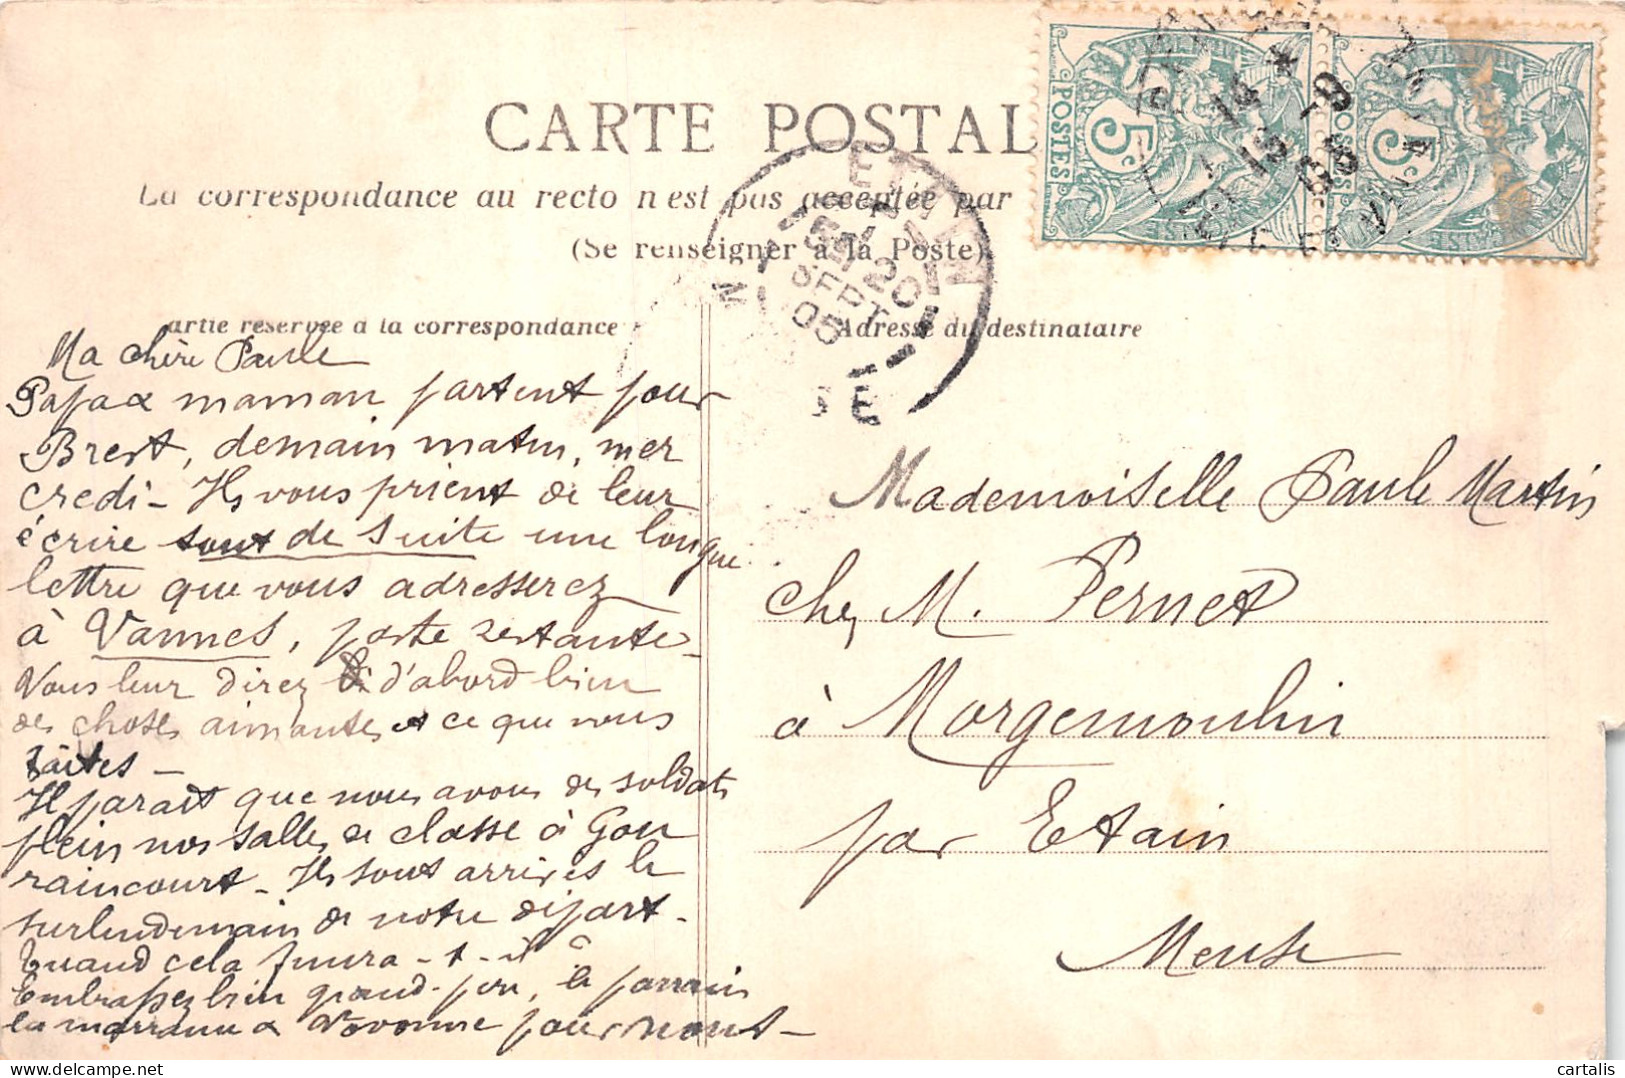 CARTE POSTAL
La correspondance au recto n'est pas acceptée par
(Se renseigner à la Poste)
artie réservée à la correspondance
Adresse du destinataire
POSTES 5
POSTES 5
ETAIN
20
SEPT
05
Ma chère Paule
Papa & maman partent pour
Brest, demain matin, mer
credi - Ils vous prient de leur
écrire tout de suite une longue
lettre que vous adresserez
à Vannes, poste restante -
Vous leur direz d'abord bien
des choses aimantes et ce que vous
faites -
Il parait que nous avons des soldats
plein nos salles de classe à Gou
raincourt - Ils sont arrivés le
surlendemain de notre départ -
Quand cela finira-t-il ?
Embrassez bien grand-père, le parrain
la marraine & Vovonne pour nous -
Mademoiselle Paule Martin
chez M. Pernet
à Morgemoulin
par Etain
Meuse
cartalis